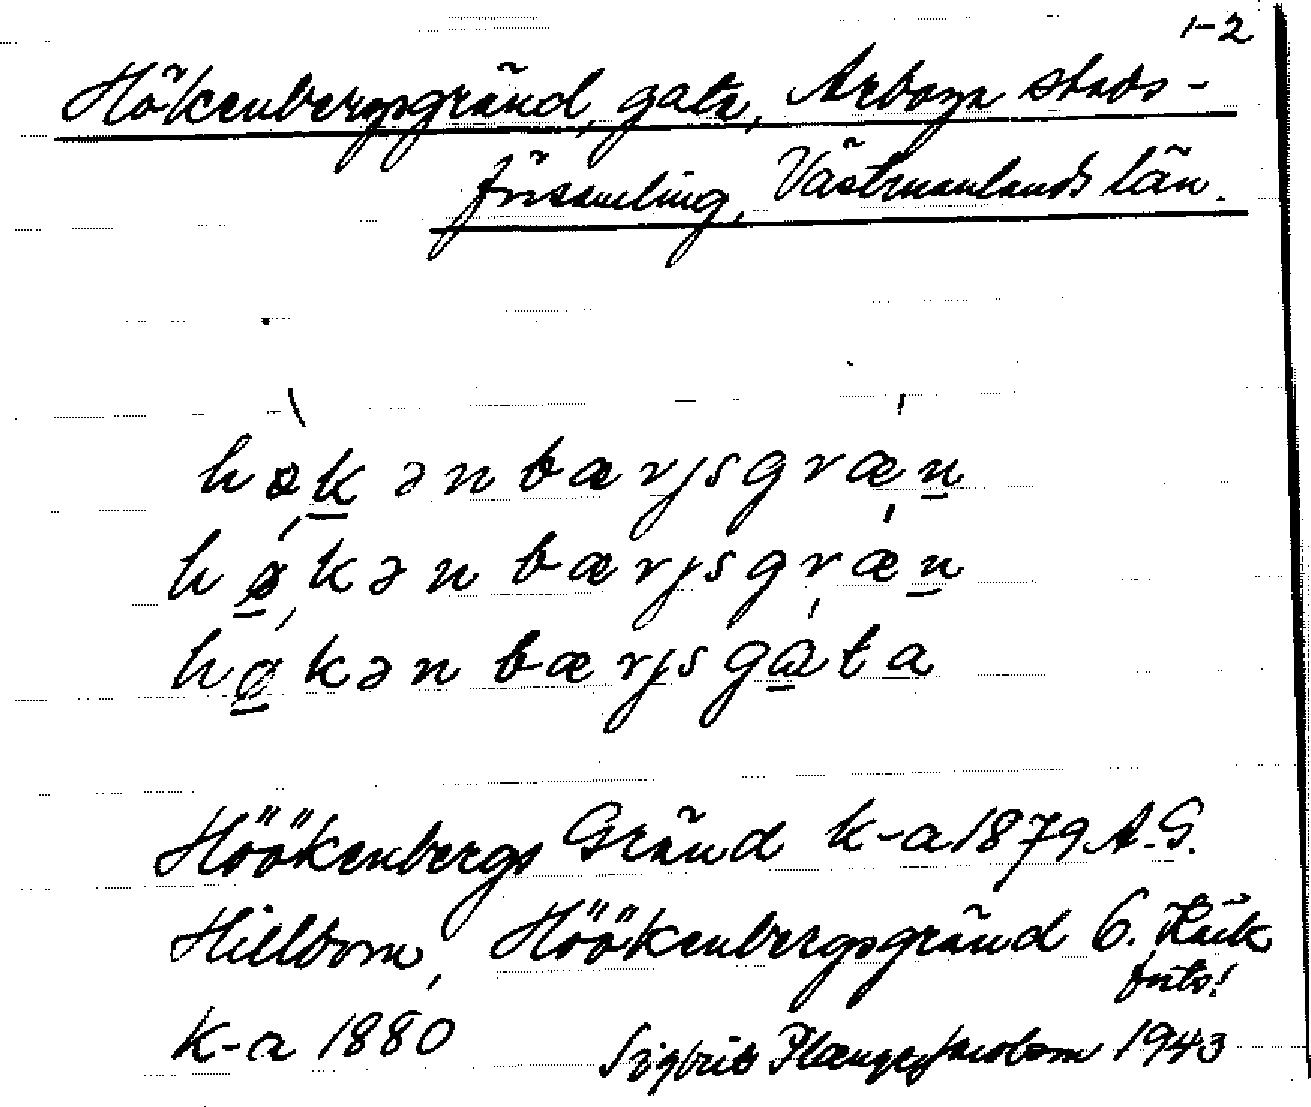 1-2
Hökenbergsgränd, gata, Arboga stads-
församling, Västmanlands län.
høkənbærjsgræn
høkənbærjsgræn
høkənbærjsgata
Höökenbergs Gränd k-a 1879 A.G.
Hillbom, Höökenbergsgränd 6.
forts!
k-a 1880
1943